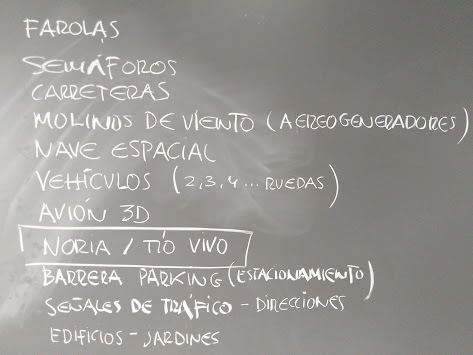 FAROLAS
SEMÁFOROS
CARRETERAS
MOLINOS DE VIENTO (AEREOGENERADORES)
NAVE ESPACIAL
VEHÍCULOS (2,3,4... RUEDAS)
AVIÓN 3D
NORIA / TÍO VIVO
BARRERA PARKING (ESTACIONAMIENTO)
SEÑALES DE TRÁFICO - DIRECCIONES
EDIFICIOS - JARDINES